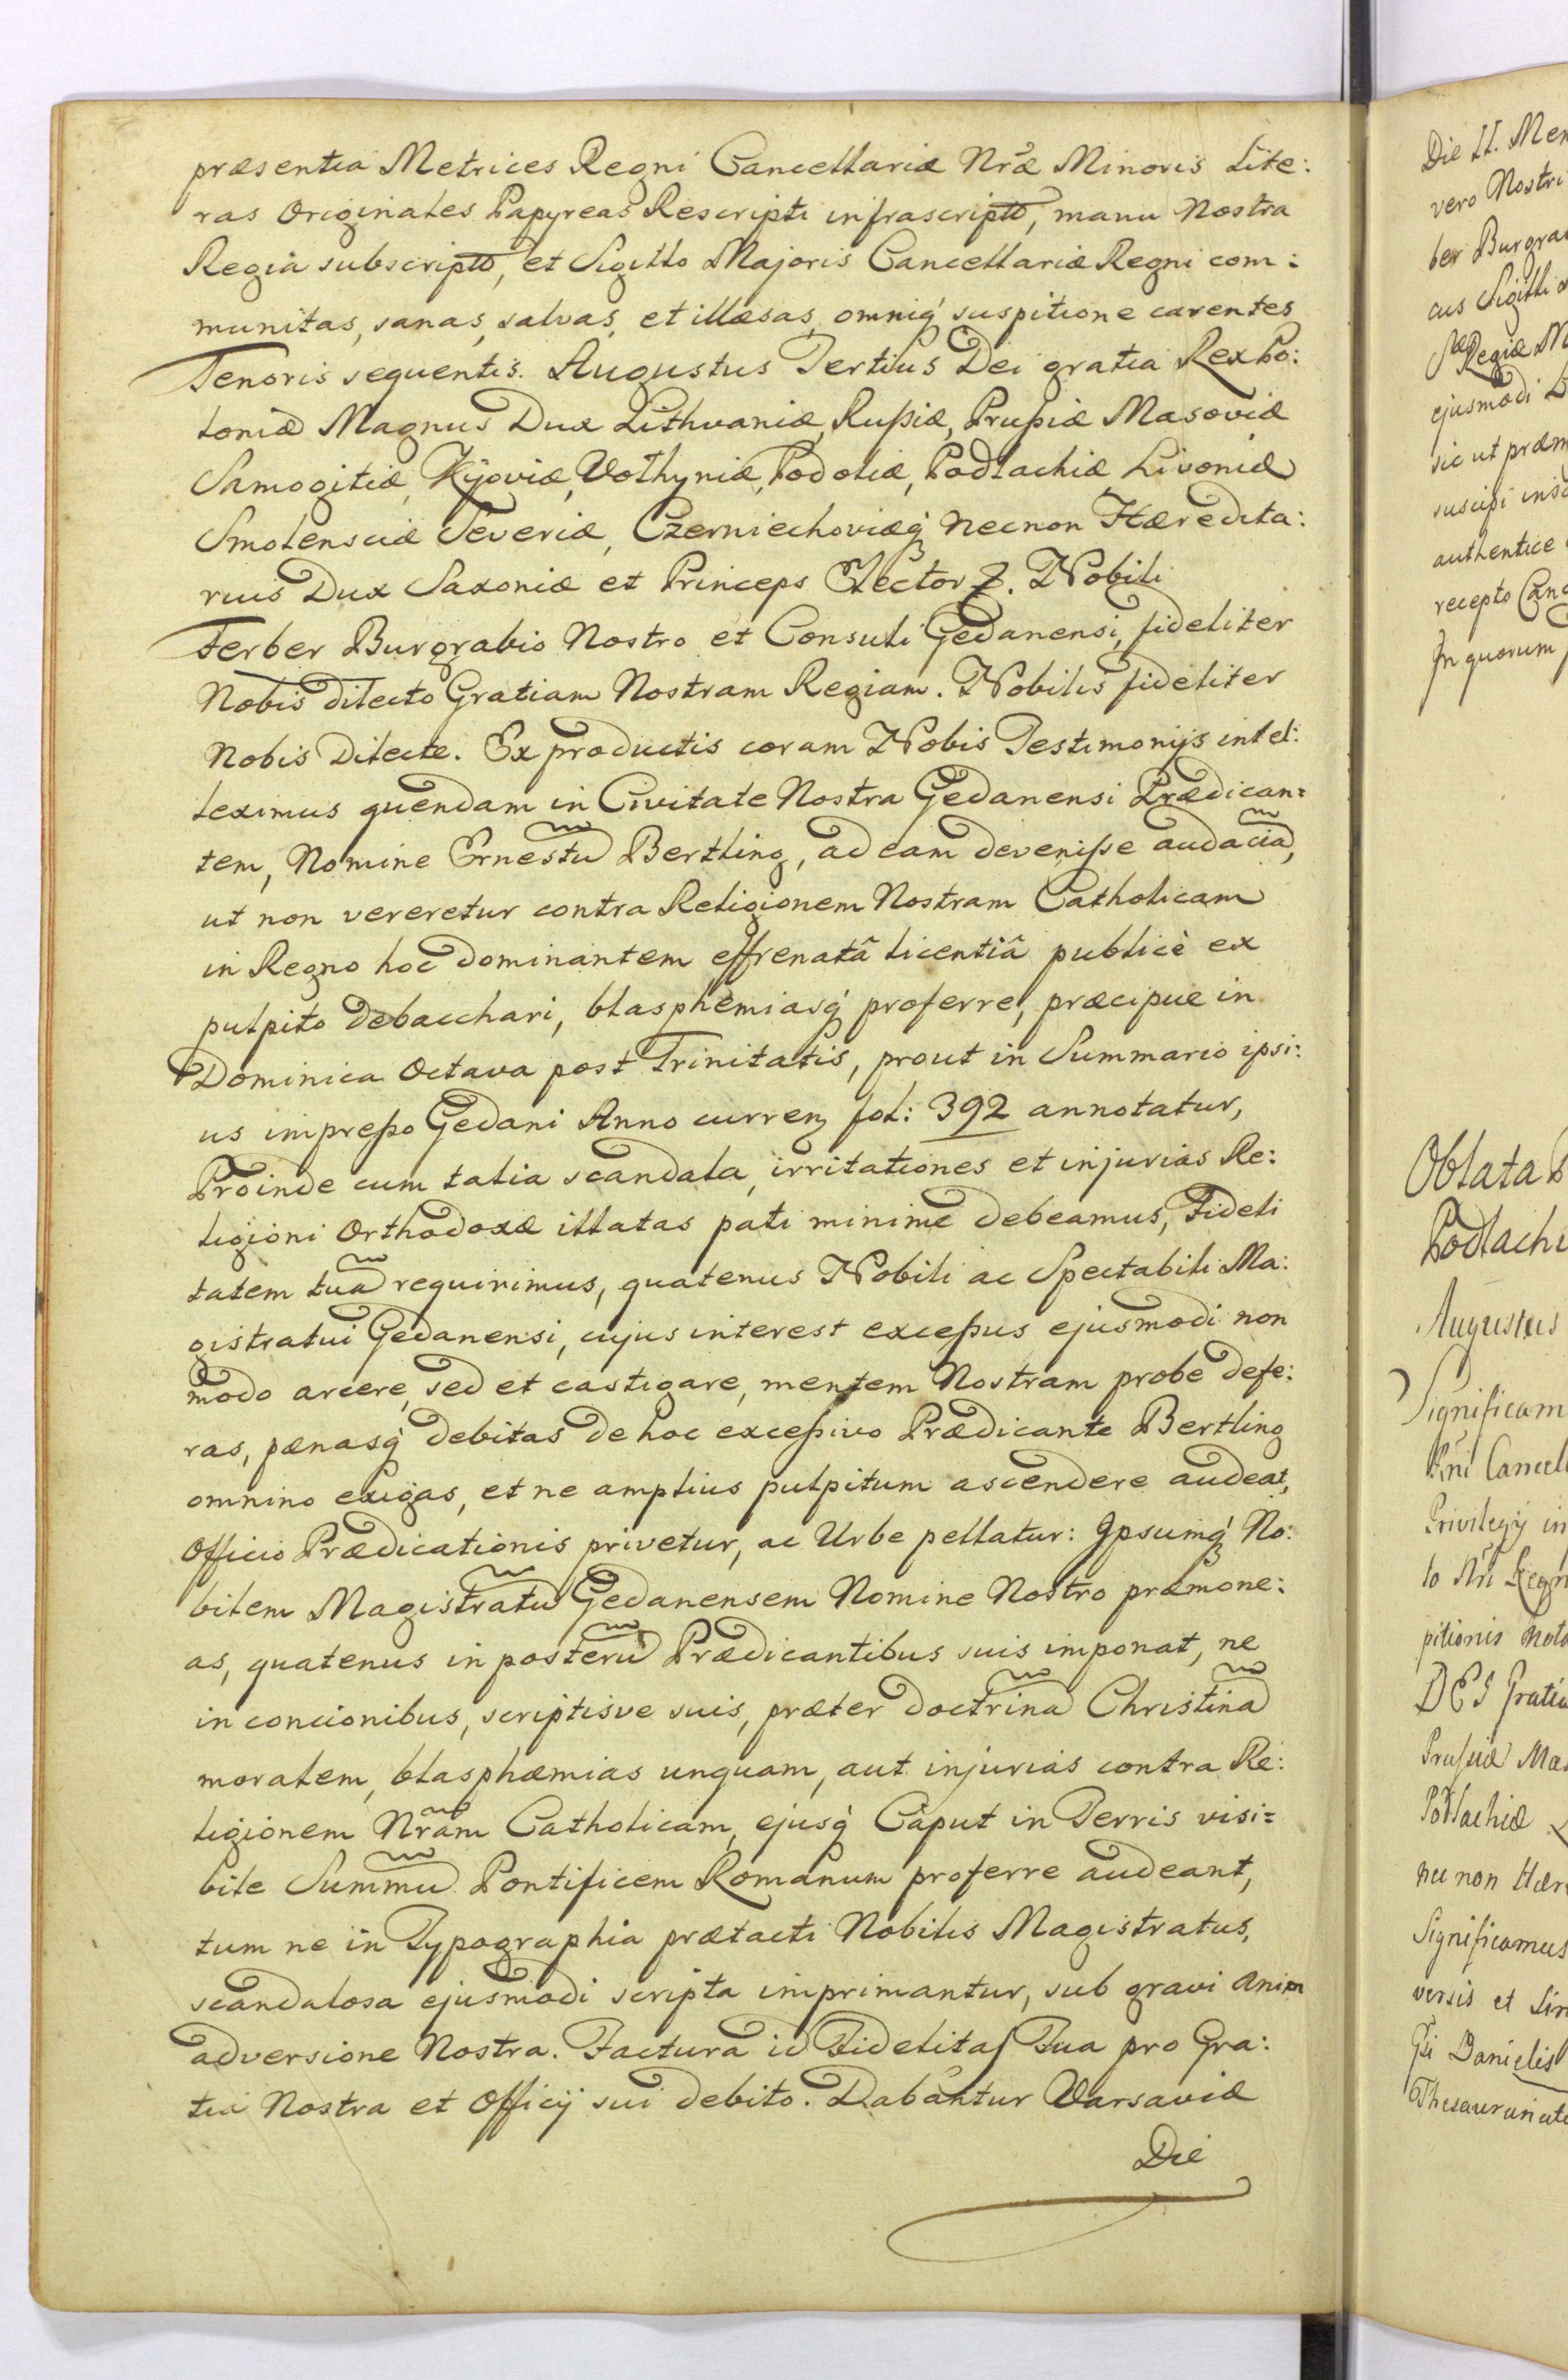 præsentia Metrices Regni Cancellariæ Nræ Minoris Lite:
ras Originales Papyreas Rescripti infrascripto, manu Nostra
Regia subscripto, et Sigillo Majoris Cancellariæ Regni com:
munitas, sanas, salvas, et illæsas, omniq́ suspitione carentes
Tenoris sequentis. Augustus Tertius Dei gratia Rex Po:
loniæ Magnus Dux Lithvaniæ, Rußiæ, Prußiæ Masoviæ
Samogitiæ, Kijoviæ, Volhyniæ, Podoliæ, Podlachiæ Livoniæ
Smolensciæ Severiæ, Czerniechoviæq́ necnon Hæredita:
rius Dux Saxoniæ et Princeps Elector. Nobili
Ferber Burgrabio Nostro et Consuli Gedanensi, fideliter
Nobis dilecto Gratiam Nostram Regiam. Nobilis fideliter
Nobis Dilecte. Ex productis coram Nobis Testimonijs intel:
leximus quendam in Civitate Nostra Gedanensi Prædican=
tem, Nomine Ernestū Bertling, ad eam deveniſse audaciā,
ut non vereretur contra Religionem Nostram Catholicam
in Regno hoc dominantem effrenatâ licentiâ publicè ex
pulpito debacchari, blasphemiasq́ proferre, præcipue in
Dominica Octava post Trinitatis, prout in Summario ipsi:
us impreßo Gedani Anno curren fol: 392 annotatur,
Proinde cum talia scandala, irritationes et injurias Re:
ligioni Orthodoxæ illatas pati minime debeamus, Fideli
tatem tuā requirimus, quatenus Nobili ac Spectabili Ma:
gistratui Gedanensi, cujus interest exceßus ejusmodi non
modo arcere, sed et castigare, mentem Nostram probe defe:
ras, pænasq́ debitas de hoc exceßivo Prædicante Bertling
omnino exigas, et ne amplius pulpitum ascendere audeat,
Officio Prædicationis privetur, ac Urbe pellatur: Ipsumq́ No:
bilem Magistratū Gedanensem Nomine Nostro præmone:
as, quatenus in posterū Prædicantibus suis imponat, ne
in concionibus, scriptisve suis, præter doctrinā Christinā
moralem, blasphæmias unquam, aut injurias contra Re:
ligionem Nrãm Catholicam, ejusq́ Caput in Terris visi=
bile Summū Pontificem Romanum proferre audeant,
tum ne in Typographia prætacti Nobilis Magistratus,
scandalosa ejusmodi scripta imprimantur, sub gravi anim
adversione Nostra. Factura id Fidelitas Tua pro Gra:
tia Nostra et Officij sui debito. Dabantur Varsaviæ
Die
Die II. Men
vero Nostri
ber Burgra
cus Sigilli
Regiæ M
ejusmodi L
sic ut præm
suscipi
authentice
recepto Canc
In quorum
Oblata
Podlachi
Augustus
Significam
Cancel
Privilegij in
Regn
pitionis
DEI Gratia
Prußiæ Mas
Podlachiæ
nec non Hær
Significamus
versis et Sin
Danielis
Thesaurariat